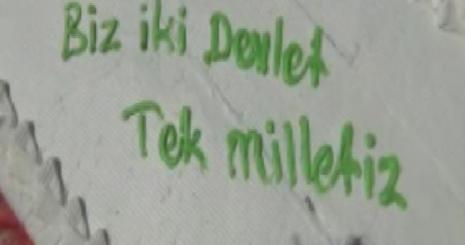 Biz iki Devlet
Tek milletiz